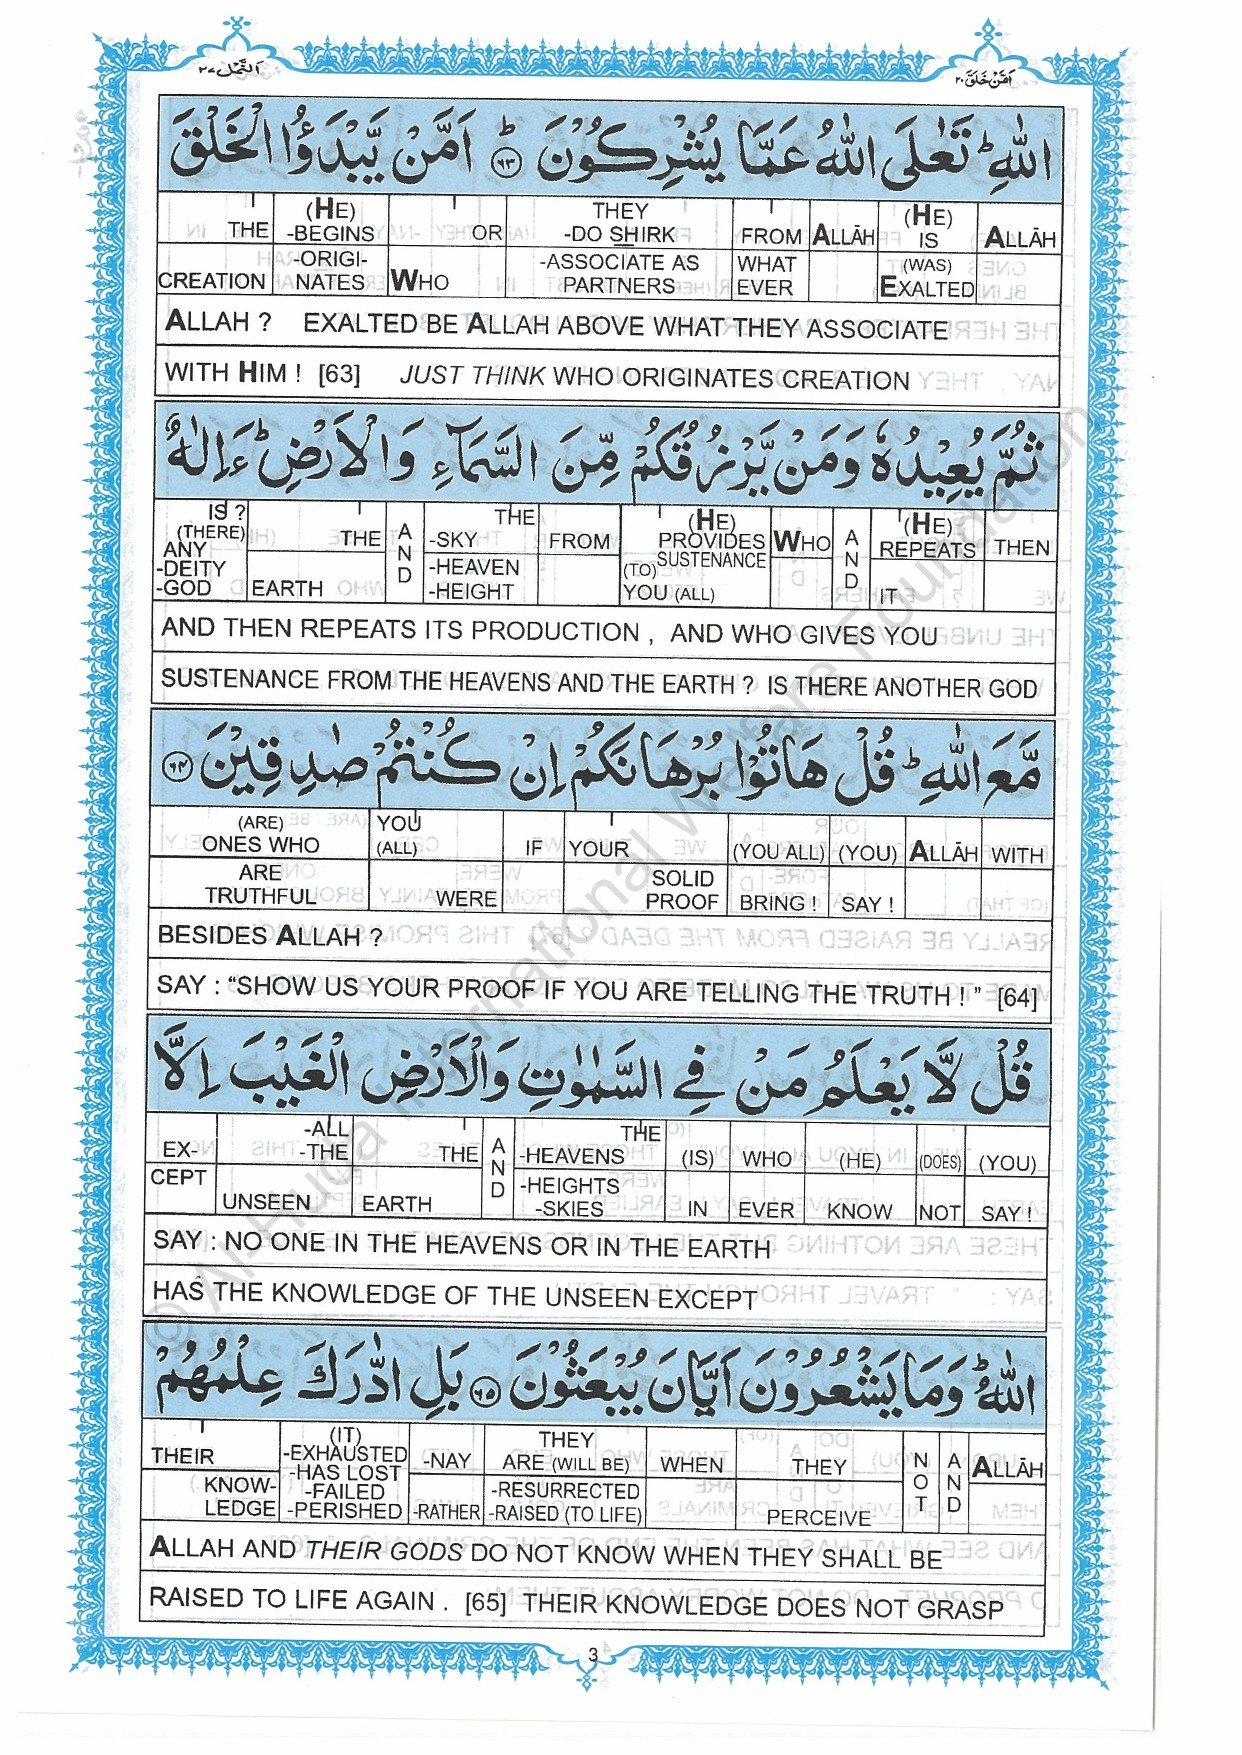 اَلنَّمْل ٢٧
اَمَّنْ خَلَقَ ٢٠
اللّٰهِ ؕ تَعٰلَى اللّٰهُ عَمَّا يُشْرِكُوْنَ ؕ ﴿٦٣﴾ اَمَّنْ يَّبْدَؤُا الْخَلْقَ
THE (HE) -BEGINS OR THEY -DO SHIRK FROM ALLĀH (HE) IS ALLĀH
CREATION -ORIGI- NATES WHO -ASSOCIATE AS PARTNERS WHAT EVER (WAS) EXALTED
ALLAH ? EXALTED BE ALLAH ABOVE WHAT THEY ASSOCIATE
WITH HIM ! [63] JUST THINK WHO ORIGINATES CREATION
ثُمَّ يُعِيْدُهٗ وَمَنْ يَّرْزُقُكُمْ مِّنَ السَّمَآءِ وَالْاَرْضِ ؕ ءَاِلٰهٌ
IS ? (THERE) ANY -DEITY -GOD THE AND THE -SKY FROM (HE) PROVIDES SUSTENANCE WHO AND (HE) REPEATS THEN
EARTH -HEAVEN -HEIGHT (TO) YOU (ALL) IT
AND THEN REPEATS ITS PRODUCTION , AND WHO GIVES YOU
SUSTENANCE FROM THE HEAVENS AND THE EARTH ? IS THERE ANOTHER GOD
مَّعَ اللّٰهِ ؕ قُلْ هَاتُوْا بُرْهَانَكُمْ اِنْ كُنْتُمْ صٰدِقِيْنَ ﴿٦٤﴾
(ARE) ONES WHO YOU (ALL) IF YOUR (YOU ALL) (YOU) ALLĀH WITH
ARE TRUTHFUL WERE SOLID PROOF BRING ! SAY !
BESIDES ALLAH ?
SAY : “SHOW US YOUR PROOF IF YOU ARE TELLING THE TRUTH ! ” [64]
قُلْ لَّا يَعْلَمُ مَنْ فِي السَّمٰوٰتِ وَالْاَرْضِ الْغَيْبَ اِلَّا
EX- -ALL -THE THE AND THE -HEAVENS (IS) WHO (HE) (DOES) (YOU)
CEPT UNSEEN EARTH -HEIGHTS -SKIES IN EVER KNOW NOT SAY !
SAY : NO ONE IN THE HEAVENS OR IN THE EARTH
HAS THE KNOWLEDGE OF THE UNSEEN EXCEPT
اللّٰهُ ؕ وَمَا يَشْعُرُوْنَ اَيَّانَ يُبْعَثُوْنَ ﴿٦٥﴾ بَلِ ادّٰرَكَ عِلْمُهُمْ
THEIR (IT) -EXHAUSTED -HAS LOST -NAY THEY ARE (WILL BE) WHEN THEY NOT AND ALLĀH
KNOW- LEDGE -FAILED -PERISHED -RATHER -RESURRECTED -RAISED (TO LIFE) PERCEIVE
ALLAH AND THEIR GODS DO NOT KNOW WHEN THEY SHALL BE
RAISED TO LIFE AGAIN . [65] THEIR KNOWLEDGE DOES NOT GRASP
3
© Al-Huda International Welfare Foundation